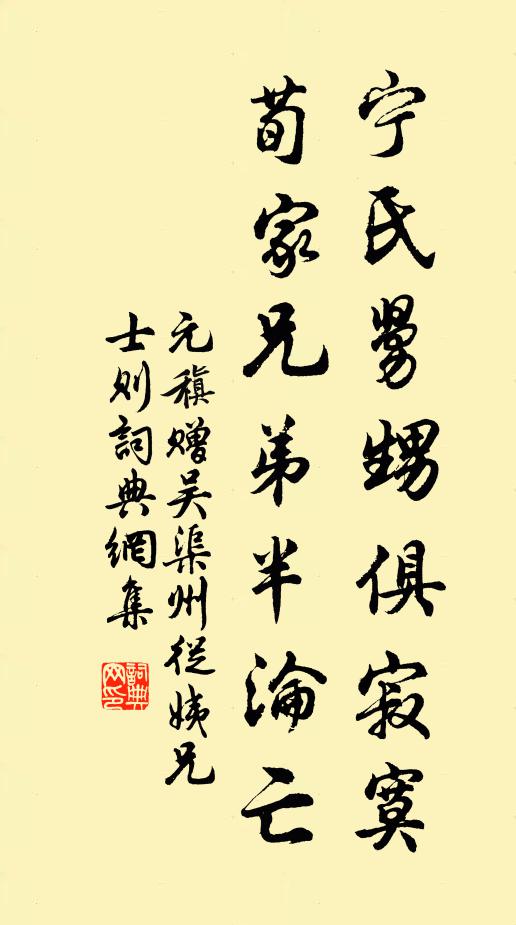 宁氏舅甥俱寂寞
荀家兄弟半淪亡
元稹贈吴渠州從姨兄
士則詞典網集
詞典
网印